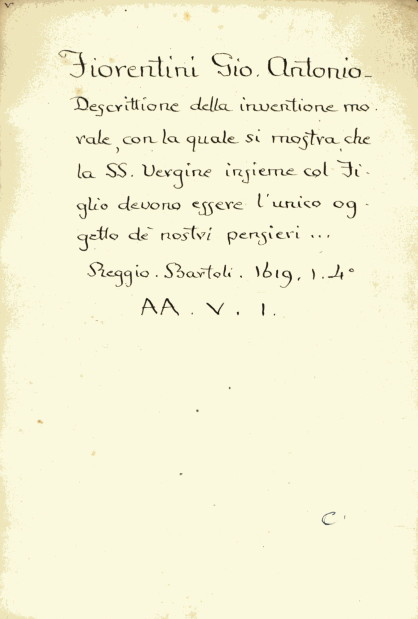 Fiorentini Gio. Antonio-
Descrittione della inventione mo.
rale, con la quale si mostra, che
la SS. Vergine insieme col Fi-
glio devono essere l'unico og-
getto de' nostri pensieri ...
Reggio. Bartoli. 1619, 1. 4°
AA. V. 1.
C